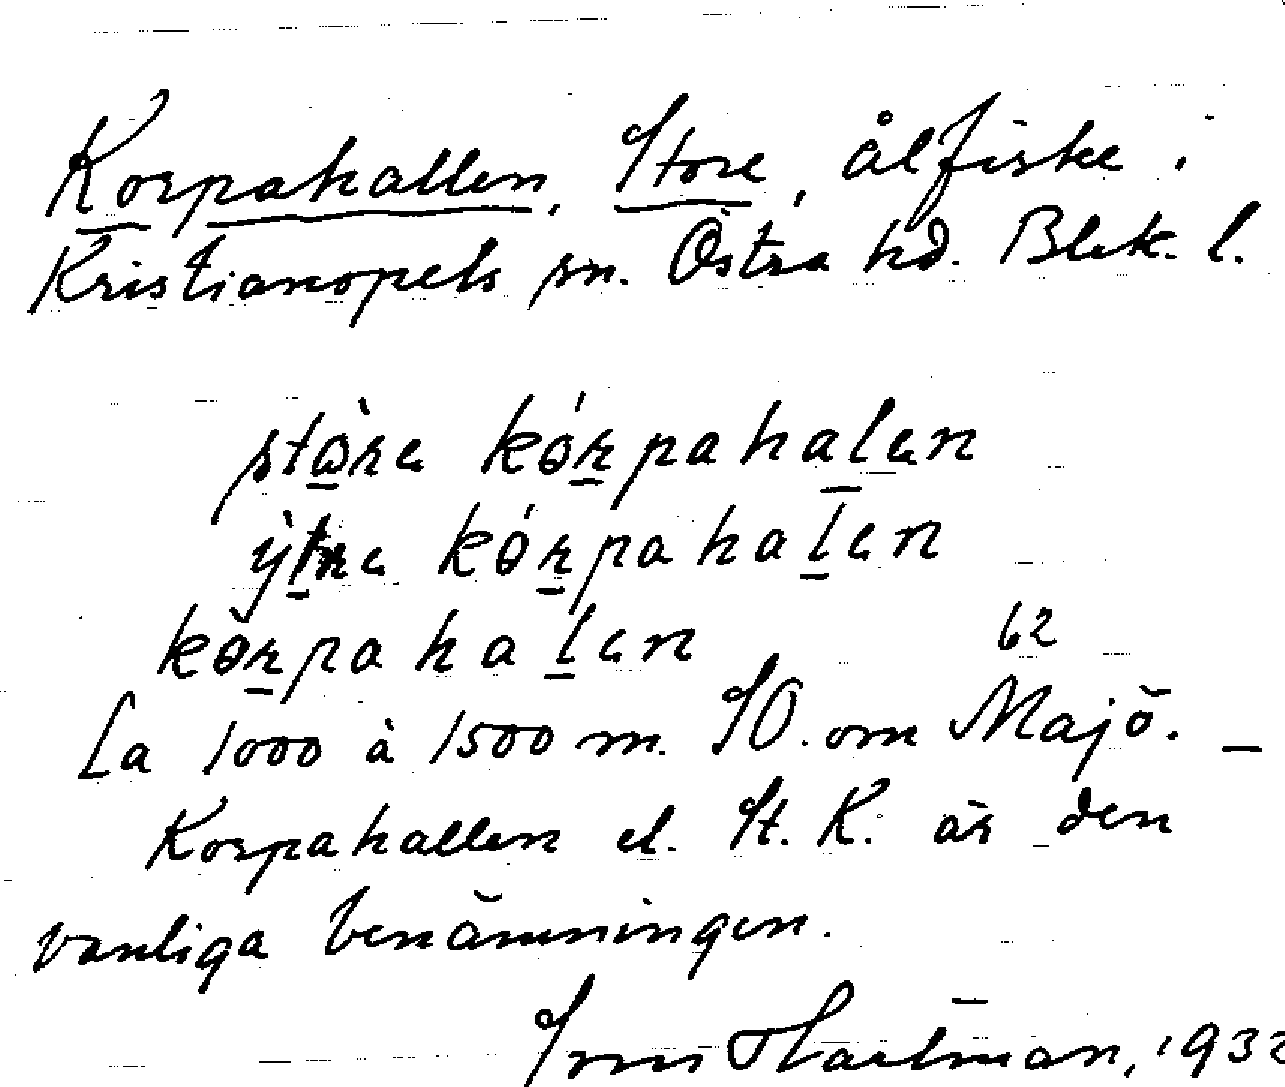 Korpahallen, Store, ålfiske i
Kristianopels sn. Östra hd. Blek. l.
stò̱re kórpahalen
ỳtre kórpahalen
kòrpahalen 62
La 1000 à 1500 m. SO. om Majö. –
Korpahallen el. St. K. är den
vanliga benämningen.
Hartman, 193